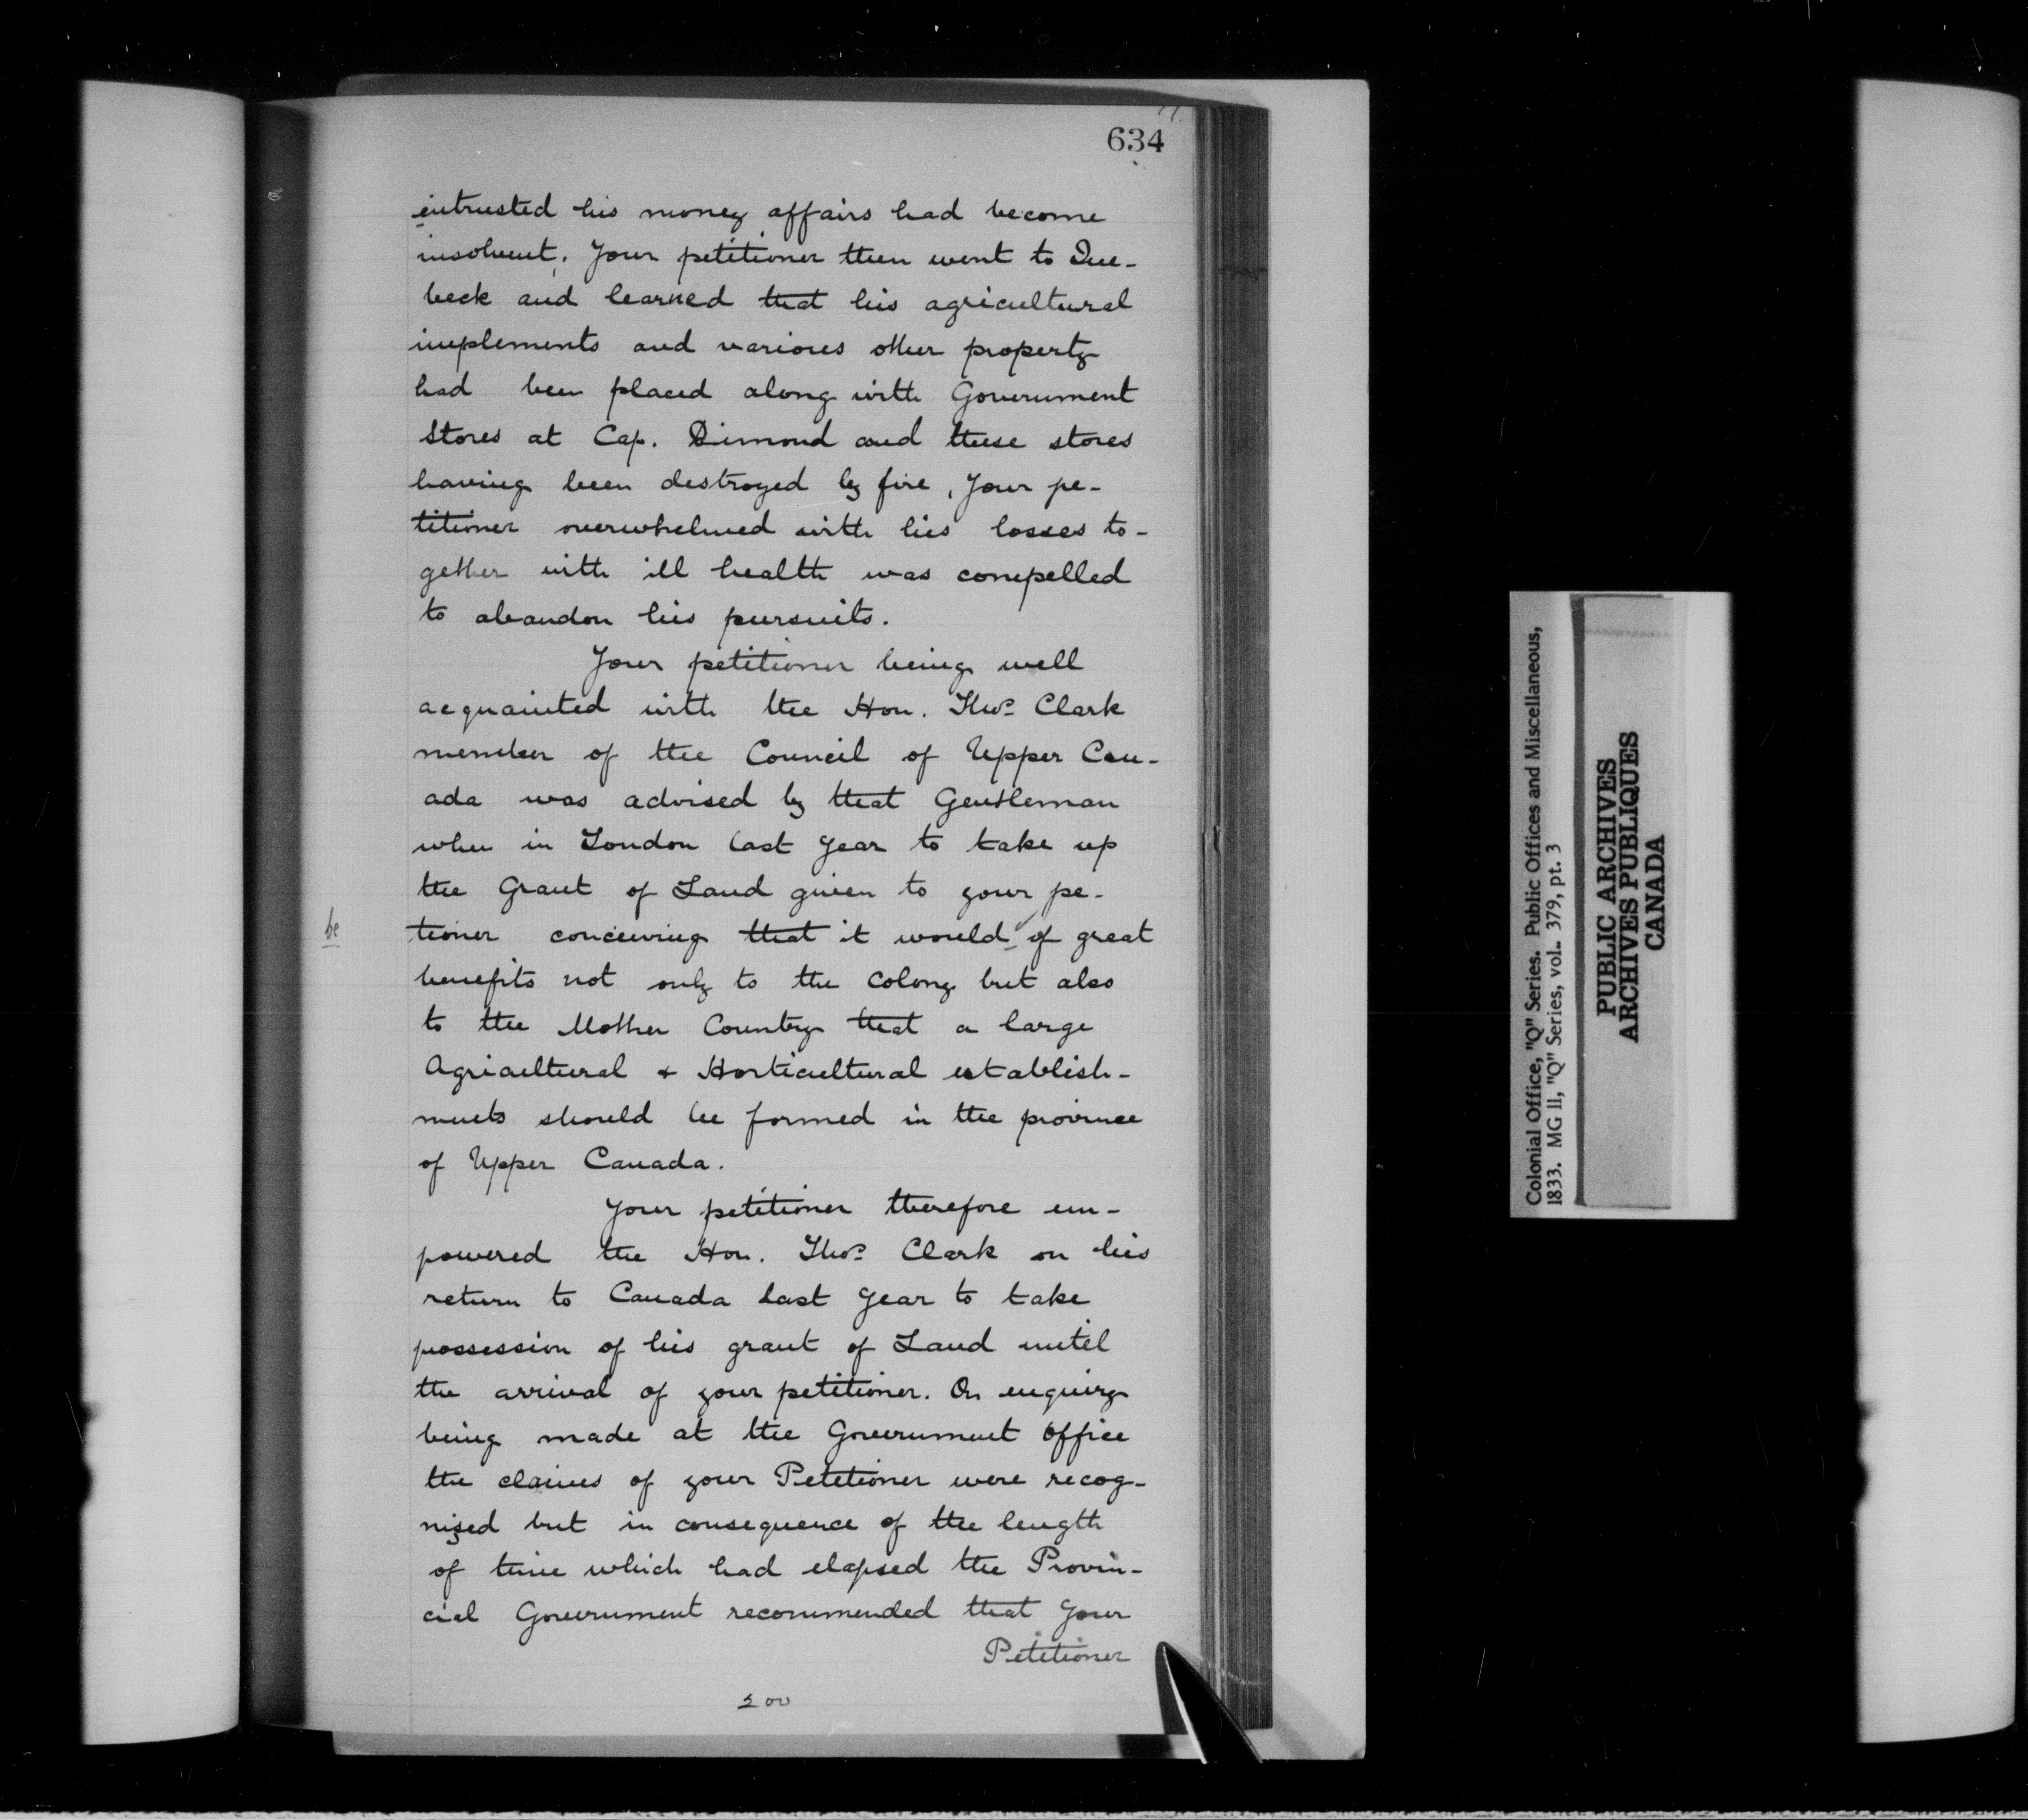 634
intrusted his money affairs had become
insolvent. Your petitioner then went to Que-
beck and learned that his agricultural
implements and various other property
had been placed along with Government
Stores at Cap. Dimond and these stores
having been destroyed by fire, your pe-
titioner overwhelmed with his losses to-
gether with ill health was compelled
to abandon his pursuits.
Your petitioner being well
acquainted with the Hon. Thos. Clark
member of the Council of Upper Can-
ada was advised by that Gentleman
when in London last year to take up
the Grant of Land given to your pe-
be
tioner conceiving that it would of great
benefits not only to the Colony but also
to the Mother Country that a large
Agricultural + Horticultural establish-
ments should be formed in the province
of Upper Canada.
Your petitioner therefore em-
powered the Hon. Thos. Clark on his
return to Canada last year to take
possession of his grant of Land until
the arrival of your petitioner. On enquiry
being made at the Government Office
the claims of your Petitioner were recog-
nized but in consequence of the length
of time which had elapsed the Provin-
cial Government recommended that your
Petitioner
200
Colonial Office, "Q" Series. Public Offices and Miscellaneous,
1833. MG 11, "Q" Series, vol. 379, pt. 3
PUBLIC ARCHIVES
ARCHIVES PUBLIQUES
CANADA